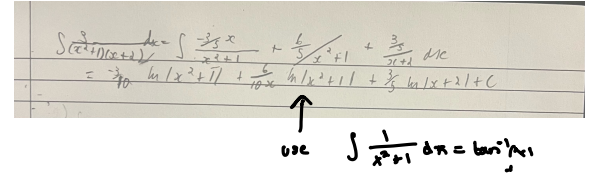 ∫ 3/((x²+1)(x+2)) dx = ∫ (-3/5 x)/(x²+1) + (6/5)/(x²+1) + (3/5)/(x+2) dx
= -3/10 ln|x²+1| + 6/10x ln|x²+1| + 3/5 ln|x+2| + C
use ∫ 1/(x²+1) dx = tan⁻¹